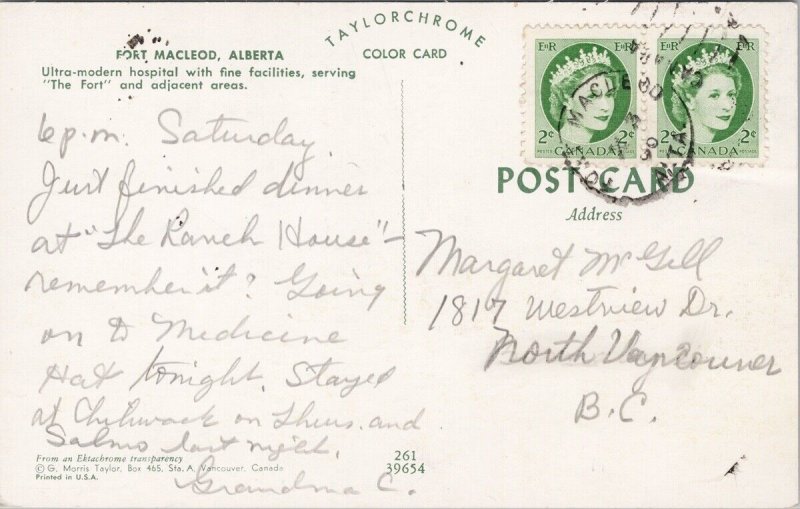 FORT MACLEOD, ALBERTA
Ultra-modern hospital with fine facilities, serving
"The Fort" and adjacent areas.
TAYLORCHROME
COLOR CARD
6 p.m. Saturday
Just finished dinner
at "The Ranch House" -
remember it? Going
on to Medicine
Hat tonight. Stayed
at Chilliwack on Thurs. and
Salmo last night.
Grandma C.
From an Ektachrome transparency
© G. Morris Taylor, Box 465, Sta. A, Vancouver, Canada
Printed in U.S.A.
261
39654
EIIR EIIR
2¢ 2¢ 2¢ 2¢
POSTES CANADA POSTAGE POSTES CANADA POSTAGE
MACLEOD
ALTA
POST CARD
Address
Margaret McGill
1817 Westview Dr.
North Vancouver
B.C.